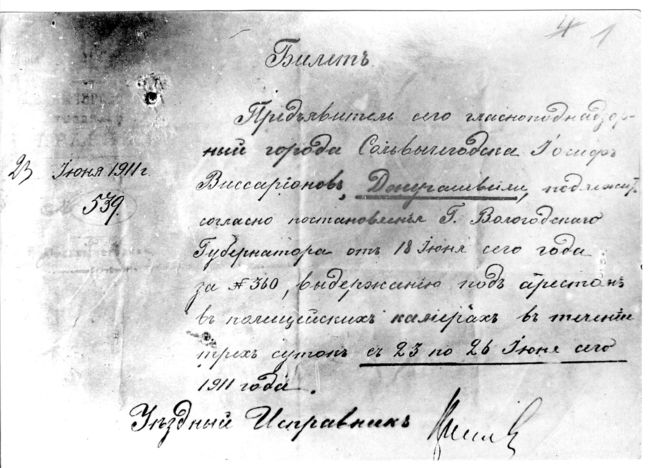 4 1
Билетъ
23 Іюня 1911 г
№ 539.
Предъявитель сего гласноподнадзор-
ный города Сольвычегодска Іосифъ
Виссаріоновъ, Джугашвили, подлежитъ,
согласно постановленья Г. Вологодскаго
Губернатора отъ 18 Іюня сего года
за № 360, выдержанію подъ арестомъ
въ полицейскихъ камерахъ въ теченіи
трехъ сутокъ съ 23 по 26 Іюня сего
1911 года.
Уѣздный Исправникъ